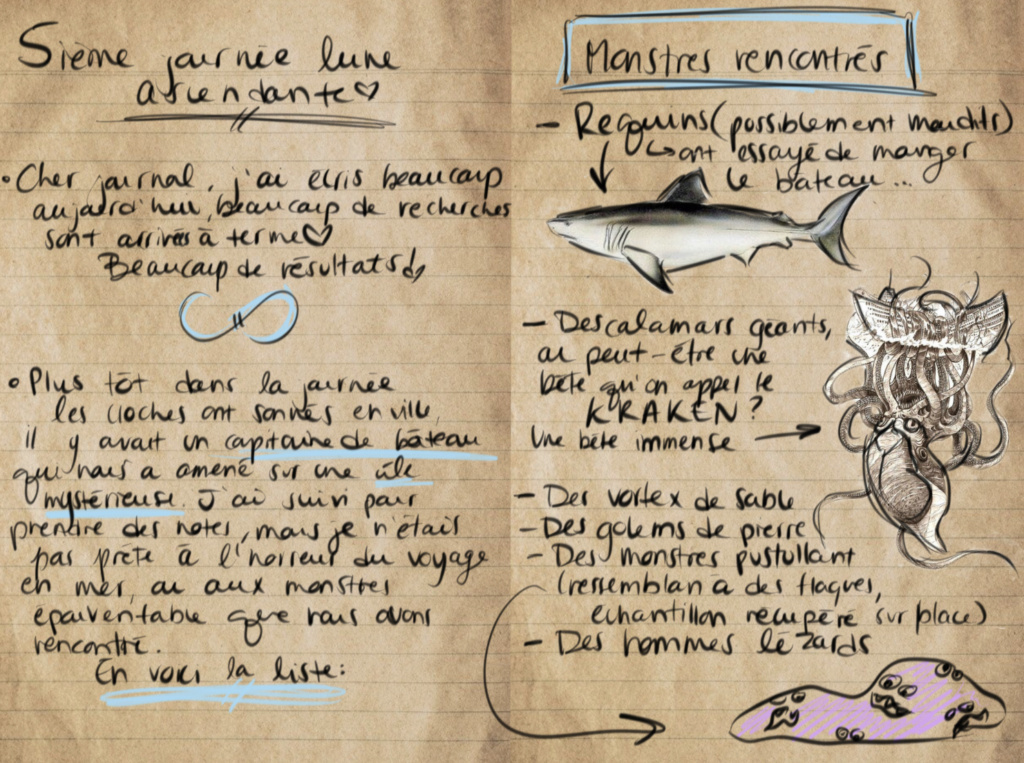 5ième journée lune
ascendante♡
• Cher journal, j'ai écris beaucoup
aujourd'hui, beaucoup de recherches
sont arrivés à terme♡
Beaucoup de résultats
• Plus tôt dans la journée
les cloches ont sonnés en ville,
il y avait un capitaine de bâteau
qui nous a amené sur une île
mystérieuse. J'ai suivi pour
prendre des notes, mais je n'étais
pas prête à l'horreur du voyage
en mer, ou aux monstres
épouventable que nous avons
rencontré.
En voici la liste:
Monstres rencontrés
- Requins (possiblement maudits)
↳ ont essayé de manger
le bâteau...
- Des calamars géants,
ou peut-être une
bête qu'on appel le
KRAKEN?
Une bête immense →
- Des vortex de sable
- Des golems de pierre
- Des monstres pustullant
(ressemblan à des flaques,
échantillon récupéré sur place)
- Des hommes lézards